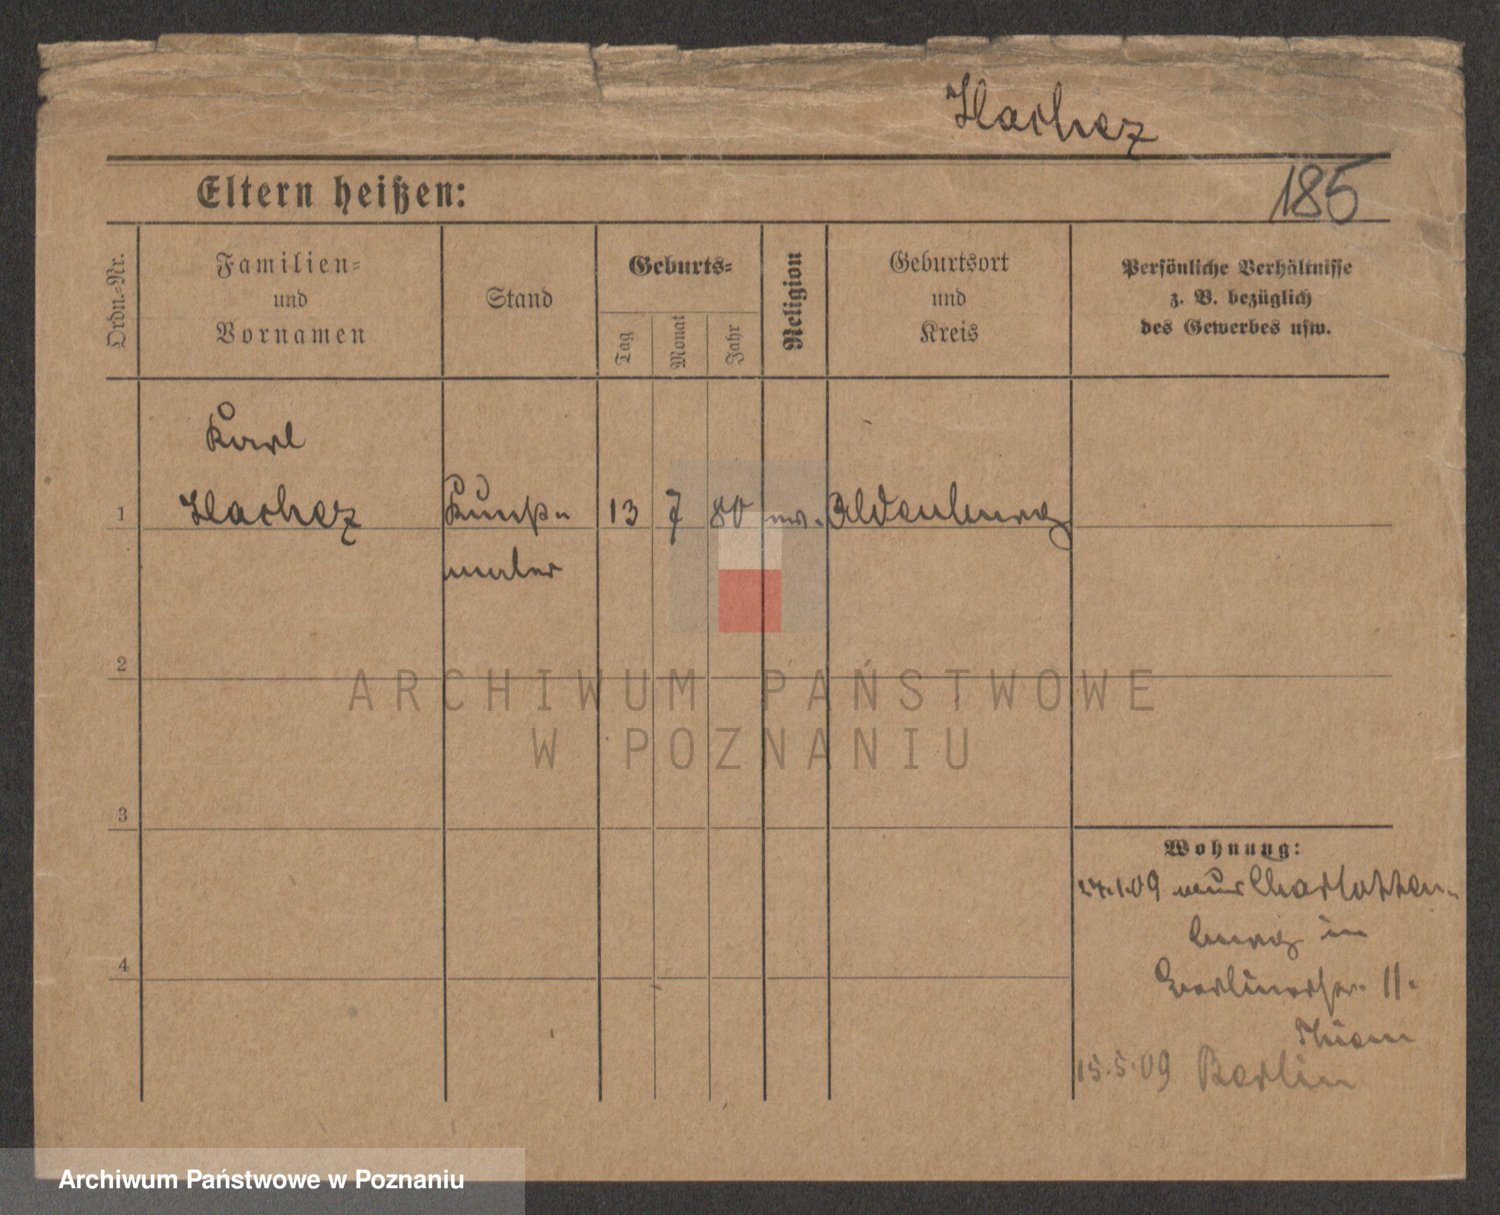 Hachez
Eltern heißen:
185
Ordn.-Nr.
Familien-
und
Vornamen
Stand
Geburts-
Tag
Monat
Jahr
Religion
Geburtsort
und
Kreis
Persönliche Verhältnisse
z. B. bezüglich
des Gewerbes usw.
Karl
1 Hachez Kunst- 13 7 80 ev. Oldenburg
maler
2
3
4
Wohnung:
24.1.09 aus Charlotten-
burg in
Berlinerstr. 11.
Thiem
15.5.09 Berlin
ARCHIWUM PAŃSTWOWE
W POZNANIU
Archiwum Państwowe w Poznaniu